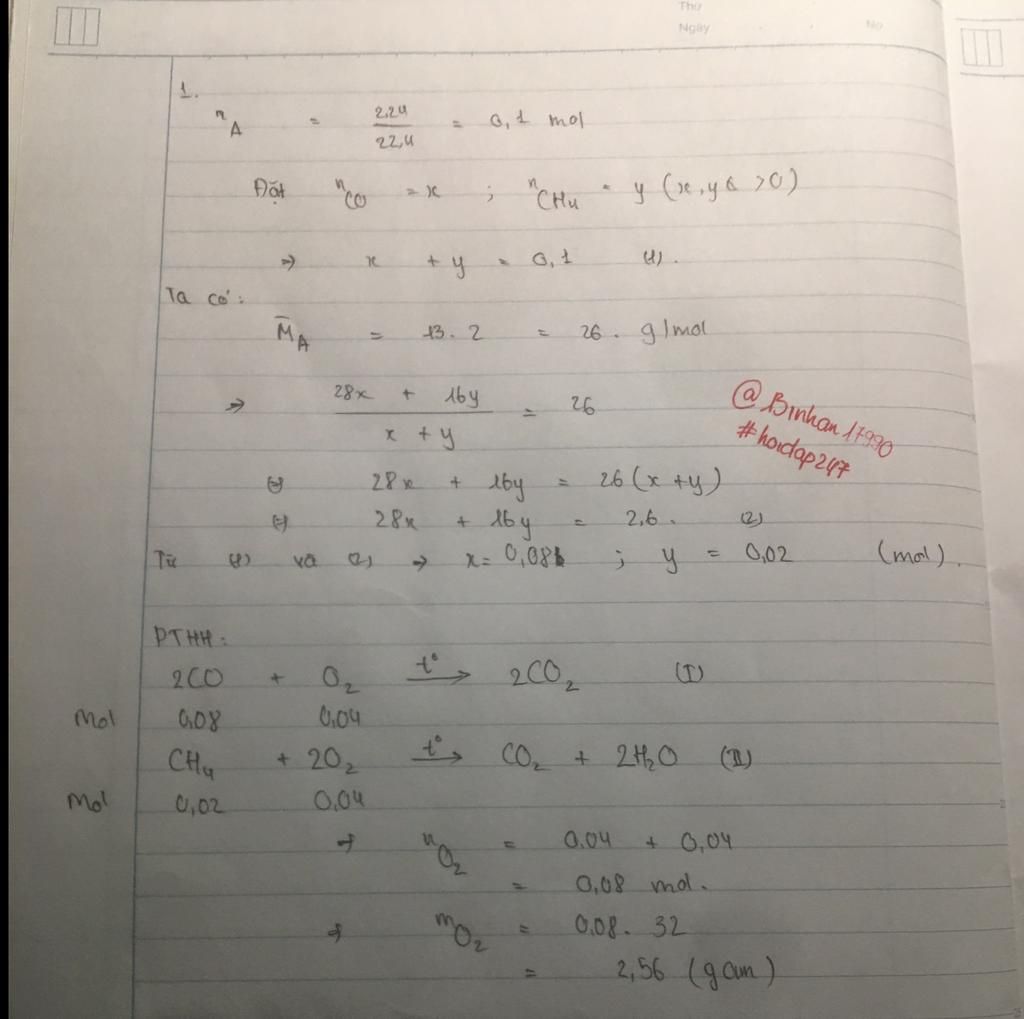 Thứ
Ngày No
1.
nA = 2,24/22,4 = 0,1 mol
Đặt nCO = x ; nCH4 = y (x, y > 0)
=> x + y = 0,1 (1).
Ta có:
M̄A = 13.2 = 26. g/mol
=> (28x + 16y)/(x + y) = 26
@Binhan17990
#hoidap247
(=) 28x + 16y = 26(x+y)
(=) 28x + 16y = 2,6. (2)
Từ (1) và (2) => x = 0,08 ; y = 0,02 (mol).
PTHH:
2CO + O2 t°→ 2CO2 (I)
Mol 0,08 0,04
CH4 + 2O2 t°→ CO2 + 2H2O (II)
Mol 0,02 0,04
=> nO2 = 0,04 + 0,04
= 0,08 mol.
=> mO2 = 0,08. 32
= 2,56 (gam)